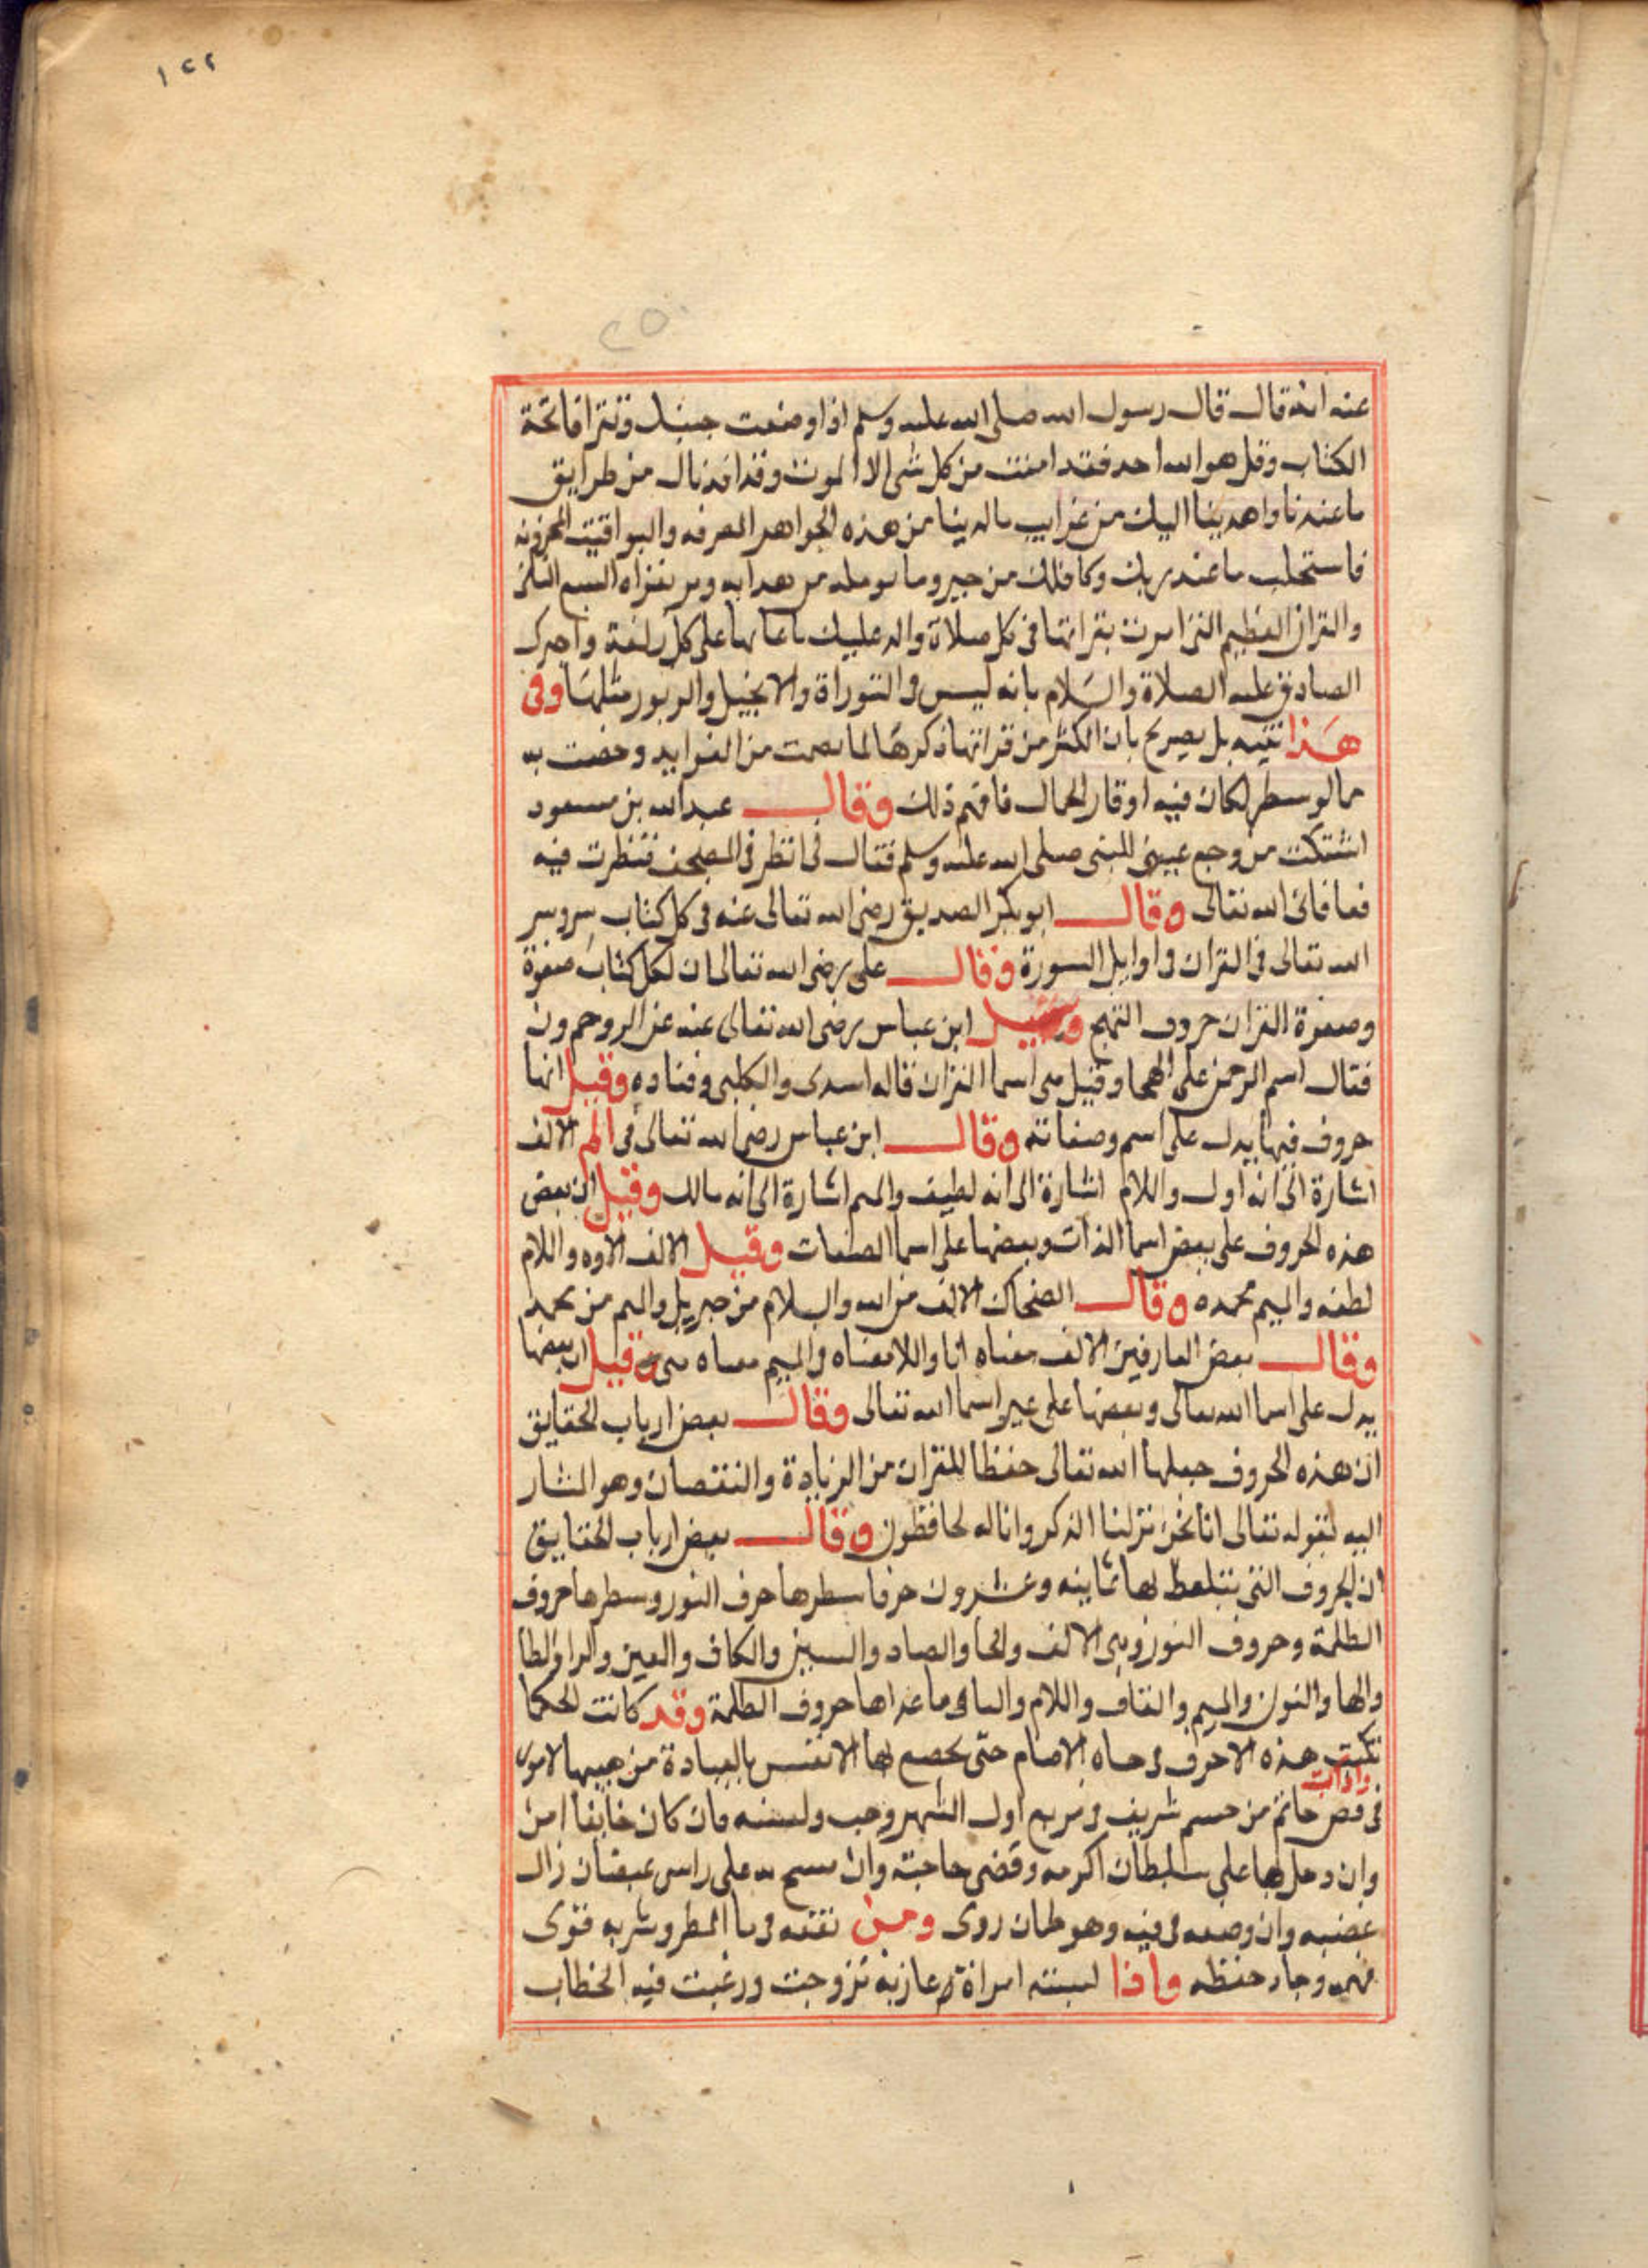 ١٢٢
٢٥
عنه انه قال قال رسول الله صلى الله عليه وسلم اذا وضعت جنبك وتقرا فاتحة
الكتاب وقل هو الله احد فقد امنت من كل شى الا الموت وقد افدناك من طرايق
ما عندنا واهدينا اليك من غرايب ما لدينا من هذه الجواهر والبواقيت المخزونه
فاستجلب ما عند ربك وكافلك من خير وما من هدايه ومن السبع
والقران العظيم التى امرت بقراتها فى كل صلاة على كل ركعة واخبرك
الصادق عليه الصلاة والسلام بانه ليس فى التوراة والانجيل والزبور مثلها وفى
هذا تنبيه بل تصريح بان اكثر من قراتها ذكرها لما من الفوايد وخصت به
مما لو سطر لكان فيه اوقار الجمال فافهم ذلك وقال عبد الله بن مسعود
اشتكت من وجع عينى للنبى صلى الله عليه وسلم فقال لى انظر فى المصحف فنظرت فيه
فعافانى الله تعالى وقال ابو بكر الصديق رضى الله تعالى عنه فى كل كتاب سر وسر
الله تعالى فى القران فى اوايل السورة وقال على رضى الله تعالى ان لكل كتاب صفوة
وصفوة القران حروف التهجى ابن عباس رضى الله تعالى عنه عن الر وحم ون
فقال اسم الرحمن على الهجا وقيل هى اسما القران قاله اسدى والكلبى وقتاده وقيل انها
حروف فيها يدل على اسم وصفاته وقال ابن عباس رضى الله تعالى فى الم الالف
اشارة الى انه اول واللام اشارة الى انه لطيف والميم اشارة الى انه مالك وقيل ان بعض
هذه الحروف على بعض اسما الذات وبعضها على اسما الصفات وقيل الالف الاوه واللام
لطفه والميم محمده وقال الضحاك الالف من الله والسلام من جبريل والميم من محمد
وقال بعض العارفين الالف معناه انا واللا معناه والميم معناه منى وقيل ان بعضها
يدل على اسما الله تعالى وبعضها على غير اسما الله تعالى وقال بعض ارباب الحقايق
ان هذه الحروف جعلها الله تعالى حفظا للقران من الزيادة والنقصان وهو المشار
اليه لقوله تعالى انا نحن نزلنا الذكر وانا له لحافظون وقال بعض ارباب الحقايق
ان الحروف التى يتلفظ بها ثمانيه وعشرون حرفا سطرها حرف النور وسطرها حروف
الظلمة وحروف النور وهى الالف والحا والصاد والسين والكاف والعين والرا والطا
والها والنون والميم والقاف واللام واليا وما عداها حروف الظلمة وقد كانت الحكما
تكتب هذه الاحرف فى حتى لها الانفس بالعبادة من
واذا كتبت
فى فص خاتم من شريف فى اول الشهر رجب ولبسه فان كان خايفا امن
وان دخل بها على سلطان اكرمه وقضى حاجته وان مسح به على راس غبضان زال
غضبه وان وضعه فى فيه وهو روى ومن نقعه فى ما المطر وشربه قوى
فهمه وجاد حفظه واذا لبسته امراة عازبة تزوجت ورغبت فيه الخطاب